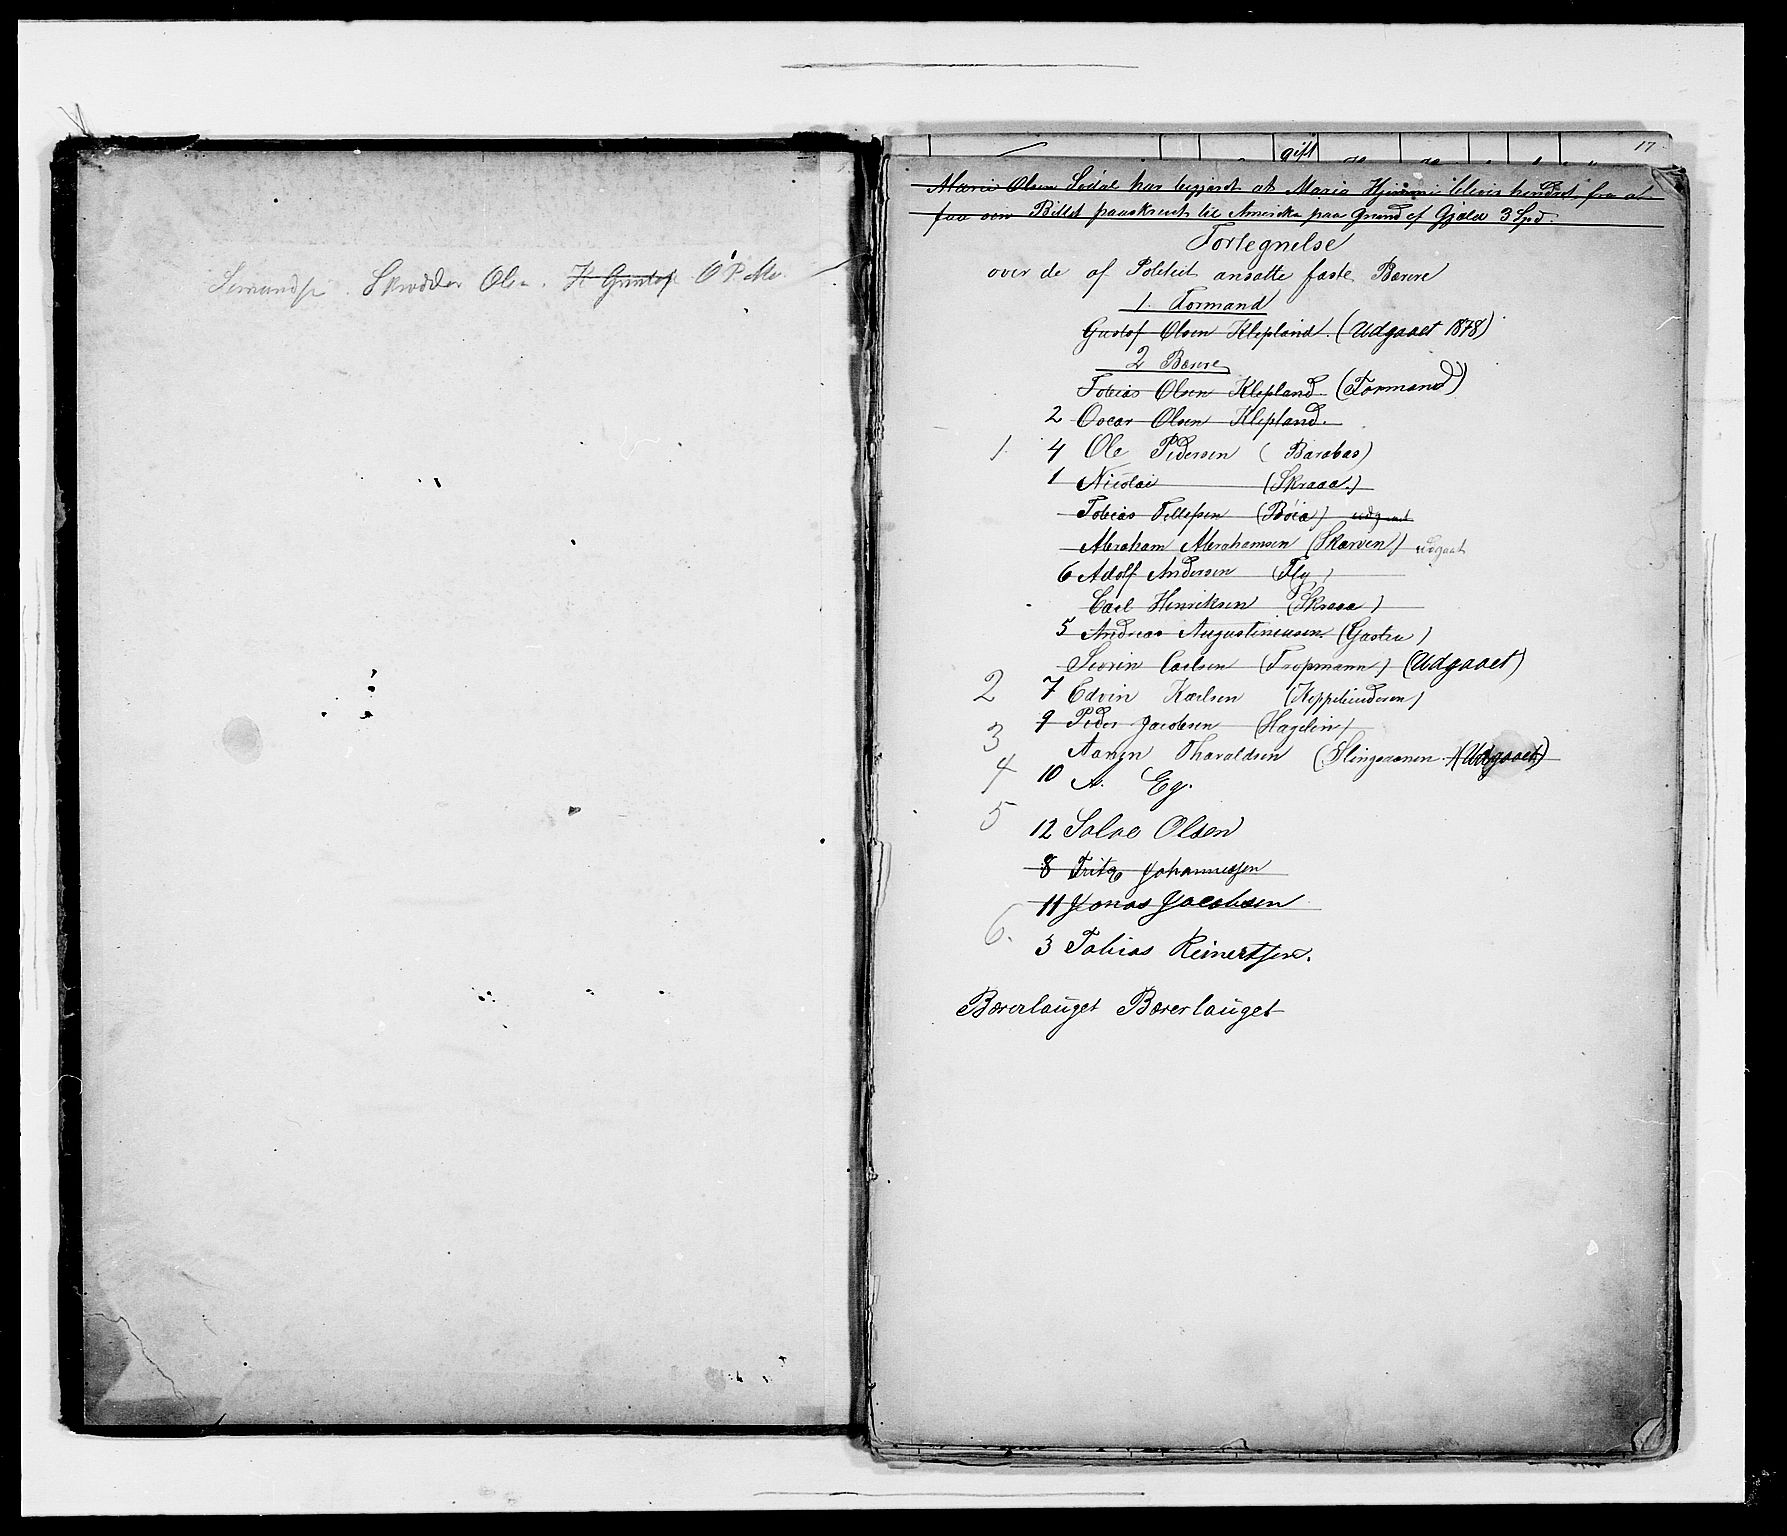 Skrædder Olsen.
gift
17
Marie Olsen Sødal har begjært at Maria bliver hindret fra at
faa sin Billet paaskrevet til Amerika paa Grund af Gjæld 3 Spd.
Fortegnelse
over de af Politiet ansatte faste Bærere
1. Formand
Gustaf Olsen Klepland. (Udgaaet 1878)
2 Bærere
Tobias Olsen Klepland (Formand)
2 Oscar Olsen Klepland.
1 4 Ole Pedersen (Barabas)
1 Nicolai (Skraaa.)
Tobias Tellefsen (Böia) udgaaet
Abraham Abrahamsen (Skarven) udgaat
6 Adolf Andersen (Fly)
Carl Henriksen (Skraaa)
5 Andreas Augustiniusen (Gastru)
Severin Carlsen (Tropmann) (Udgaaet)
2 7 Edvin Karlsen
3 9 Peder Jacobsen (Hagelin)
Aanen Tharaldsen (Udgaaet)
4 10 A. Eg.
5 12 Salve Olsen
8 Fritz Johannessen
11 Jonas Jacobsen
6. 3 Tobias Reinertsen.
Bærerlauget Bærerlauget